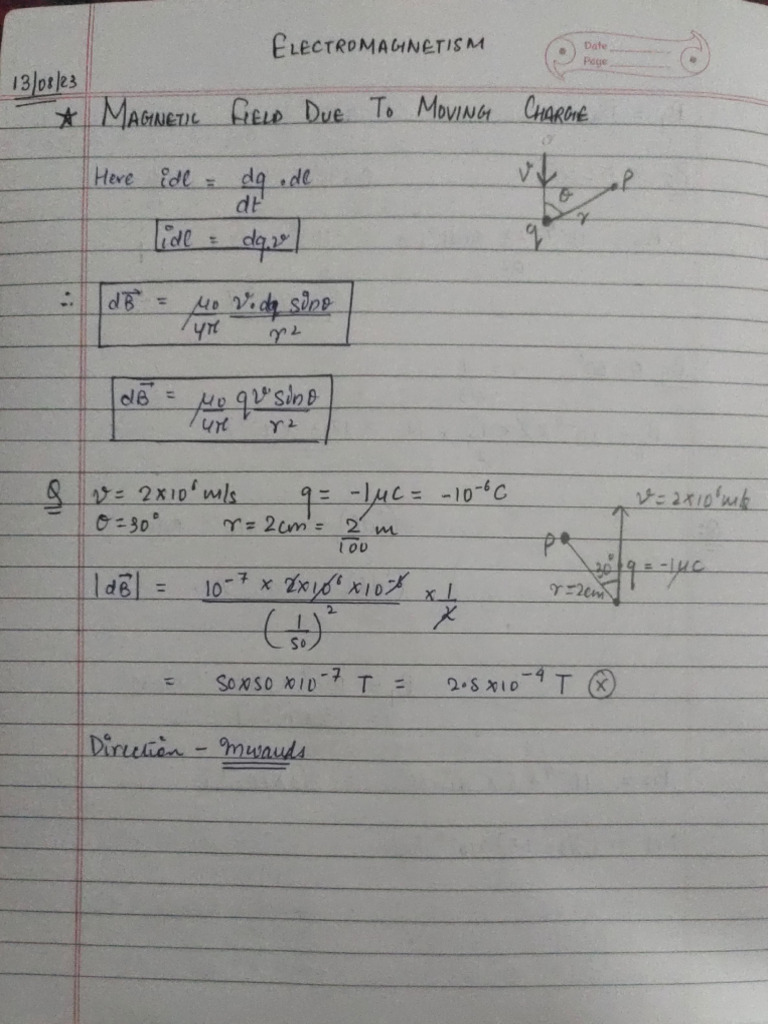 ELECTROMAGNETISM
Date
Page
13/08/23
★ MAGNETIC FIELD DUE TO MOVING CHARGE
Here idl = dq/dt . dl
idl = dq.v
v θ P q r
∴ dB⃗ = μ0/4π v.dq sinθ/r²
dB⃗ = μ0/4π qv sinθ/r²
Q v = 2×10⁶ m/s q = -1μC = -10⁻⁶ C
θ = 30° r = 2cm = 2/100 m
v = 2×10⁶ m/s
P 30° q = -1μC
r = 2cm
|dB⃗| = 10⁻⁷ × 2×10⁶ × 10⁻⁶/(1/50)² × 1/2
= 50×50×10⁻⁷ T = 2.5×10⁻⁴ T ⓧ
Direction - Inwards